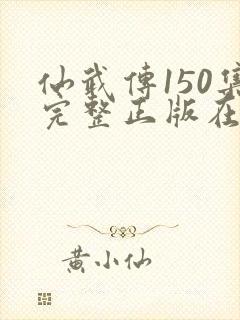 仙武傳150集
完整正版在
黄小仙